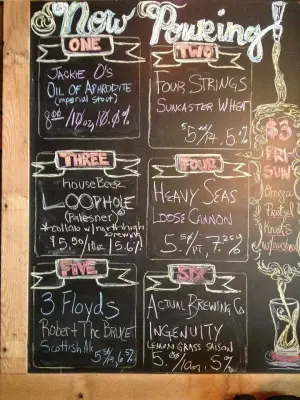 Now Pouring!
ONE
Jackie O's
Oil of Aphrodite
(imperial stout)
8.00/10oz, 10.0%
TWO
Four Strings
Suncaster Wheat
5%
THREE
House Beer
LOOPHOLE
(Palesner)
*collab w/ north high
Brewing
$5.00/10oz 5.6%
FOUR
Heavy Seas
Loose Cannon
5.50/PT, 7.25%
FIVE
3 Floyds
Robert The Bruce
Scottish Ale
SIX
Actual Brewing Co
Ingenuity
Lemon Grass Saison
5.00/10oz, 5%
$3
FRI-
SUN
Omega
Pretzel
Knots
w/mustard